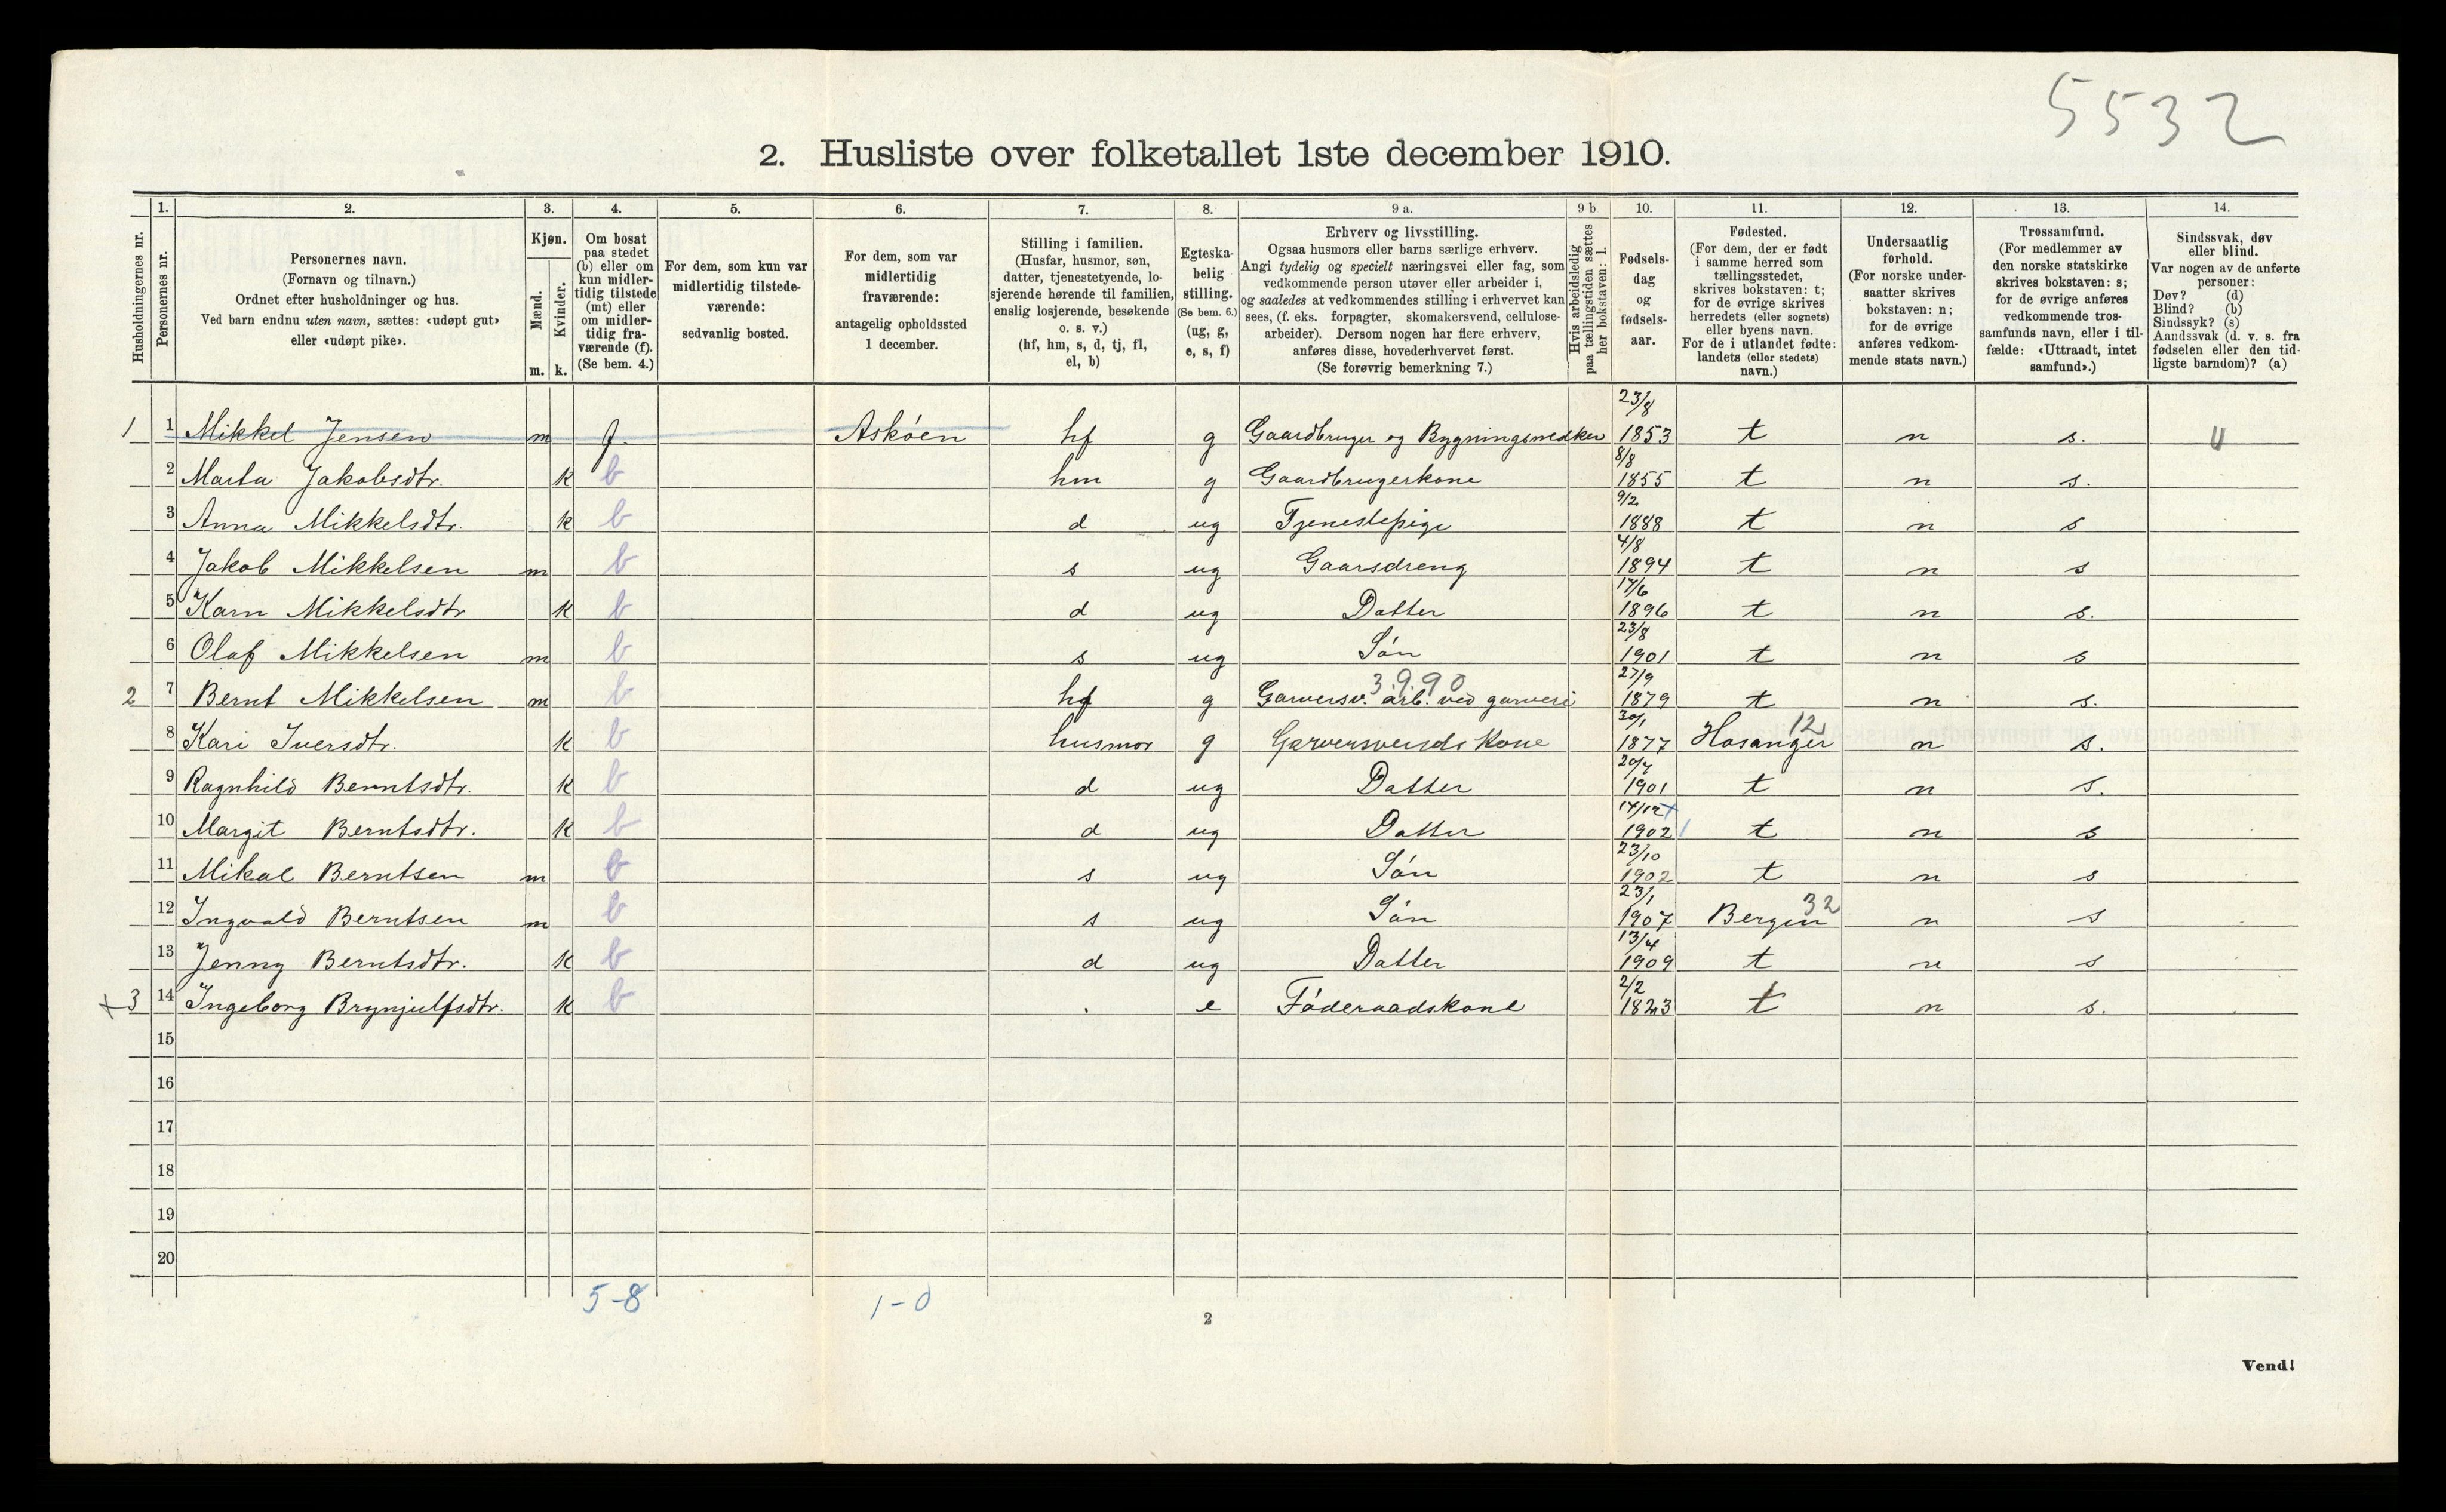 5532
2. Husliste over folketallet 1ste december 1910.
1. 2. 3. 4. 5. 6. 7. 8. 9 a. 9 b 10. 11. 12. 13. 14.
Husholdningernes nr.
Personernes nr.
Personernes navn.
(Fornavn og tilnavn.)
Ordnet efter husholdninger og hus.
Ved barn endnu uten navn, sættes: «udøpt gut»
eller «udøpt pike».
Kjøn.
Mænd.
Kvinder.
m. k.
Om bosat
paa stedet
(b) eller om
kun midler-
tidig tilstede
(mt) eller
om midler-
tidig fra-
værende (f).
(Se bem. 4.)
For dem, som kun var
midlertidig tilstede-
værende:
sedvanlig bosted.
For dem, som var
midlertidig
fraværende:
antagelig opholdssted
1 december.
Stilling i familien.
(Husfar, husmor, søn,
datter, tjenestetyende, lo-
sjerende hørende til familien,
enslig losjerende, besøkende
o. s. v.)
(hf, hm, s, d, tj, fl,
el, b)
Egteska-
belig
stilling.
(Se bem. 6.)
(ug, g,
e, s, f)
Erhverv og livsstilling.
Ogsaa husmors eller barns særlige erhverv.
Angi tydelig og specielt næringsvei eller fag, som
vedkommende person utøver eller arbeider i,
og saaledes at vedkommendes stilling i erhvervet kan
sees, (f. eks. forpagter, skomakersvend, cellulose-
arbeider). Dersom nogen har flere erhverv,
anføres disse, hovederhvervet først.
(Se forøvrig bemerkning 7.)
Hvis arbeidsledig
paa tællingstiden sættes
her bokstaven: l.
Fødsels-
dag
og
fødsels-
aar.
Fødested.
(For dem, der er født
i samme herred som
tællingsstedet,
skrives bokstaven: t;
for de øvrige skrives
herredets (eller sognets)
eller byens navn.
For de i utlandet fødte:
landets (eller stedets)
navn.)
Undersaatlig
forhold.
(For norske under-
saatter skrives
bokstaven: n;
for de øvrige
anføres vedkom-
mende stats navn.)
Trossamfund.
(For medlemmer av
den norske statskirke
skrives bokstaven: s;
for de øvrige anføres
vedkommende tros-
samfunds navn, eller i til-
fælde: «Uttraadt, intet
samfund».)
Sindssvak, døv
eller blind.
Var nogen av de anførte
personer:
Døv? (d)
Blind? (b)
Sindssyk? (s)
Aandssvak (d. v. s. fra
fødselen eller den tid-
ligste barndom)? (a)
1 1 Mikkel Jensen m f. Askøen hf g Gaardbruger og Bygningsmedker 23/8 1853 t n s.
2 Marta Jakobsdtr. k b hm g Gaardbrugerkone 8/8 1855 t n s.
3 Anna Mikkelsdtr. k b d ug Tjenestepige 9/2 1888 t n s
4 Jakob Mikkelsen m b s ug Gaarsdreng 4/8 1894 t n s
5 Karn Mikkelsdtr k b d ug Datter 17/6 1896 t n s.
6 Olaf Mikkelsen m b s ug Søn 23/8 1901 t n s
2 7 Bernt Mikkelsen m b hf g Garversv. arb. ved garveri 3990 27/9 1879 t n s.
8 Kari Iversdtr. k b husmor g Garversvends Kone 30/1 1877 Hosanger 12 n s.
9 Ragnhild Berntsdtr. k b d ug Datter 20/7 1901 t n s.
10 Margit Berntsdtr. k b d ug Datter 14/12 1902 t n s
11 Mikal Berntsen m b s ug Søn 23/10 1902 t n s
12 Ingvald Berntsen m b s ug Søn 23/1 1907 Bergen 32 n s
13 Jenny Berntsdtr. k b d ug Datter 13/4 1909 t n s
+3 14 Ingeborg Brynjulfsdtr. k b e Føderaadskone 2/2 1823 t n s.
15
16
17
18
19
20
5-8 1-0
2
Vend!